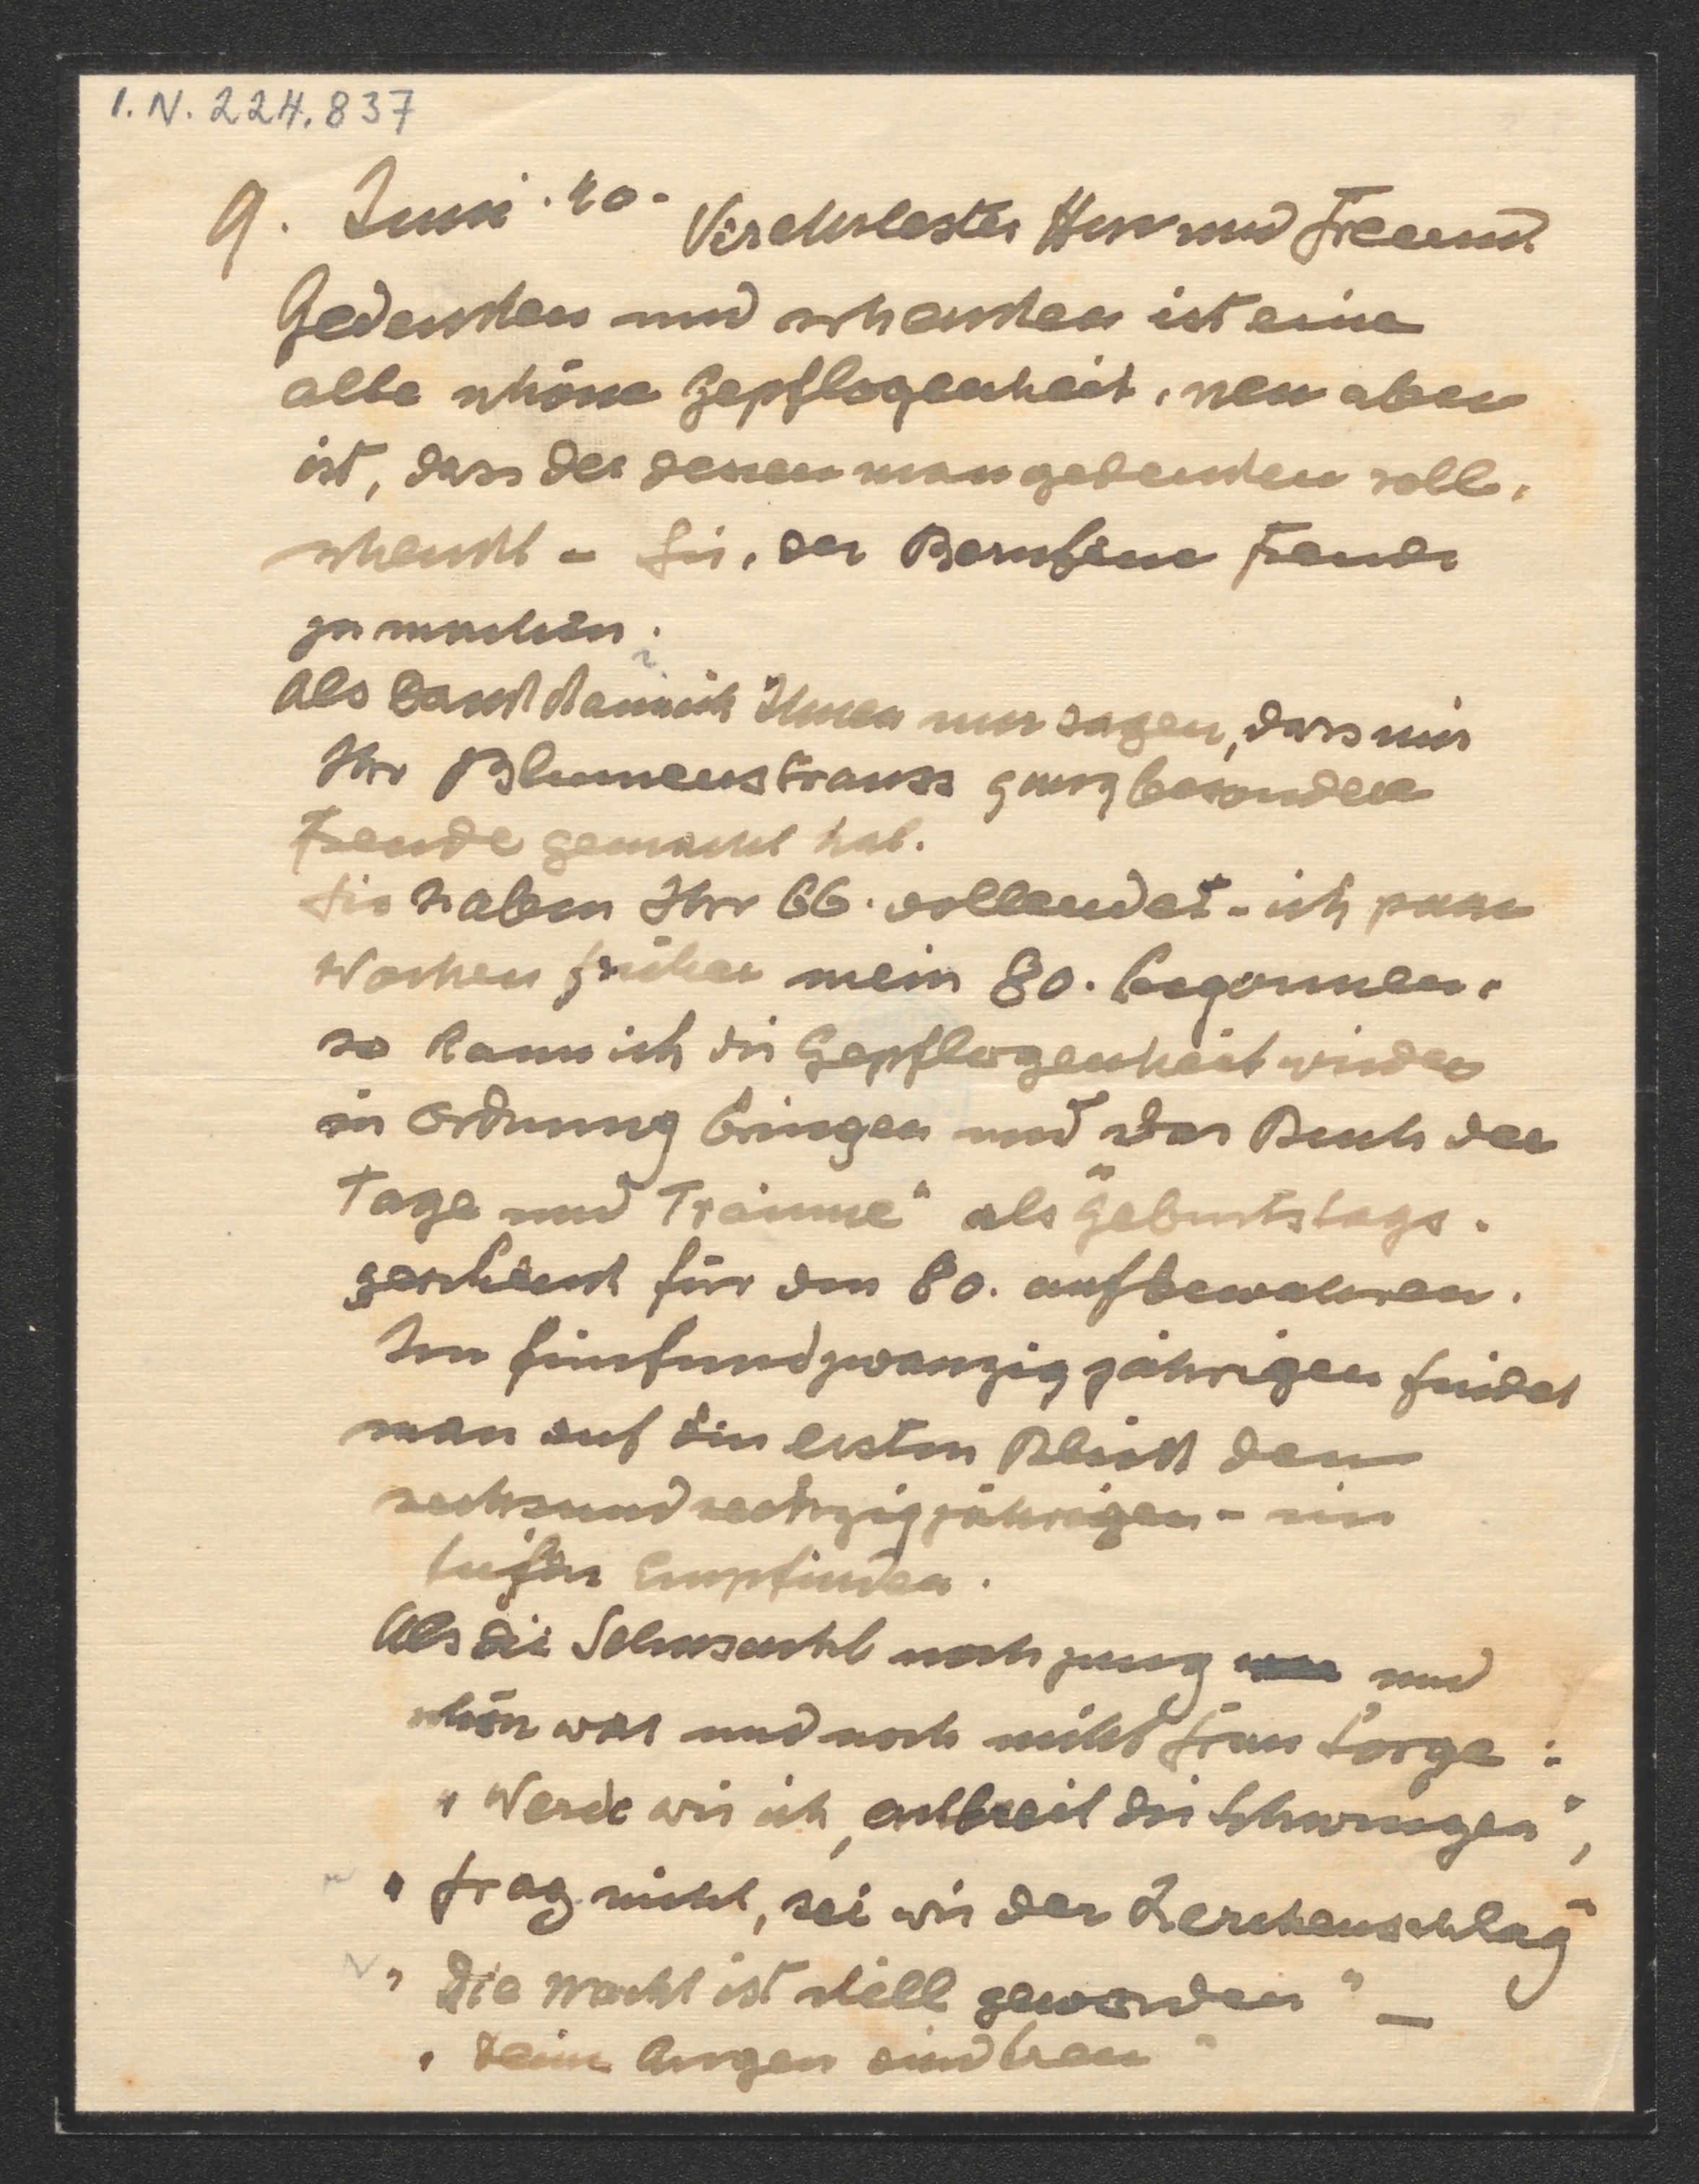 I.N. 224.837
9. Juni. 40. Verehrtester Herr und Freund
Gedenken und schenken ist eine
alte schöne Gepflogenheit, neu aber
ist, dass der dessen man gedenken soll,
schenkt - Sie, der Berufene Freude
zu machen.
Als Dank kann ich Ihnen nur sagen, dass mir
Ihr Blumenstrauss ganz besondere
Freude gemacht hat.
Sie haben Ihr 66. vollendet - ich paar
Wochen früher mein 80. begonnen,
so kann ich die Gepflogenheit wieder
in Ordnung bringen und das Buch der
Tage und Träume" als "Geburtstags-
geschenk für den 80. aufbewahren.
Im fünfundzwanzigjährigen findet
man auf den ersten Blick den
sechsundsechzigjährigen - im
tiefen Empfinden.
Als die Sehnsucht noch jung und
schön war und noch nicht Frau Sorge:
"Werde wie ich, entbreit die Schwingen",
"frag nicht, sei wie der Lerchenschlag"
"Die Nacht ist still geworden" —
"Deine Augen sind treu"